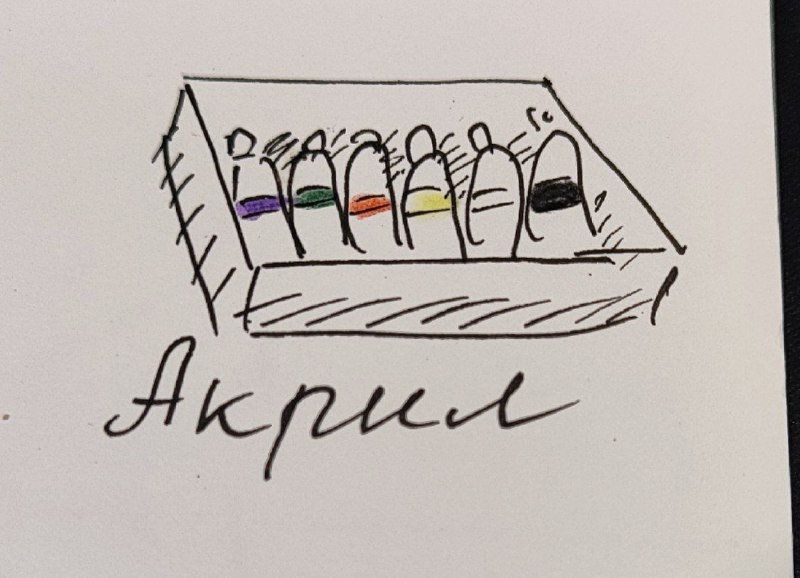 Акрил